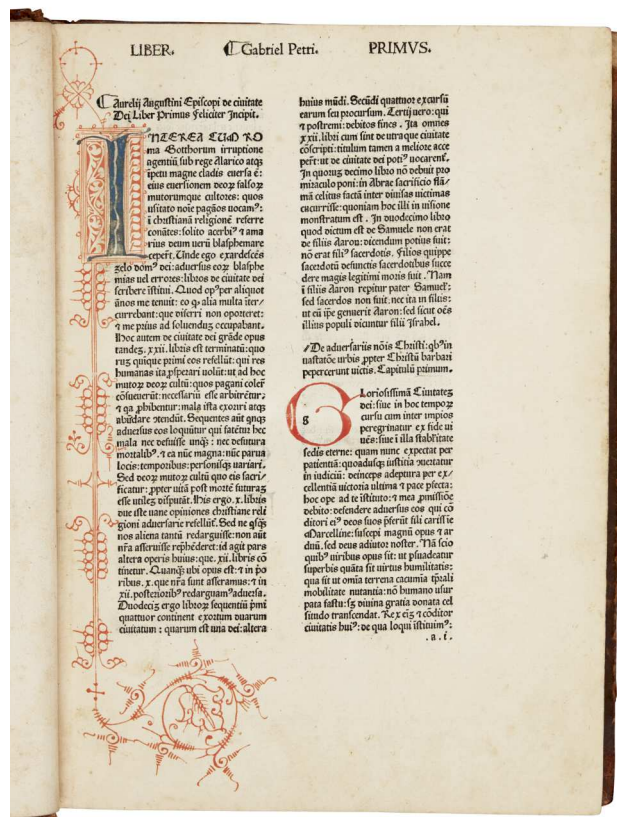 LIBER. Gabriel Petri. PRIMVS.
Aurelij Augustini Episcopi de ciuitate
Dei Liber Primus feliciter Incipit.
INTEREA CUM RO
ma Gotthorum irruptione
agentiū sub rege Alarico atqȝ
ipetu magne cladis euersa ē:
eius euersionem deoꝝ falsoꝝ
mutorumque cultores: quos
usitato noīe pagāos uocamꝰ:
ī christianā religionē referre
conātes: solito acerbiꝰ ⁊ ama
rius deum uerū blasphemare
ceperūt. Unde ego exardescēs
zelo domꝰ dei: aduersus eoꝝ blasphe
mias uel errores: libros de ciuitate dei
scribere īstitui. Quod opꝰ per aliquot
ānos me tenuit: eo qꝫ alia multa iter/
currebant: que differri non oporteret:
⁊ me prius ad soluenduꝫ occupabant.
Hoc autem de ciuitate dei grāde opus
tandeꝫ .xxii. libris est terminatū: quo
ruꝫ quique primi eos refellūt: qui res
humanas ita ꝓsperari uolūt: ut ad hoc
mutoꝝ deoꝝ cultū: quos pagani colere
cōsueuerūt: necessariū esse arbitrētur:
⁊ qa ꝓhibentur: mala ista exoriri atqȝ
abūdare ↄtendūt. Sequentes aūt qnqȝ
aduersus eos loquūtur qui fatētur hec
mala nec defuisse unqꝫ: nec defutura
mortalibꝰ. ⁊ ea nūc magna: nūc parua
locis: temporibus: personisqȝ uariari.
Sed deoꝝ mutoꝝ cultū quo eis sacri/
ficatur: ꝓpter uitā post mortē futurā
esse utileꝫ disputāt. His ergo .x. libris
due iste uane opiniones christiane reli
gioni aduersarie refellūt. Sed ne qsqȝ
nos aliena tantū redarguisse: non aūt
nr̄a asseruisse rep̄hēderet: id agit pars
altera operis huius: que .xii. libris cō
tinetur. Quanqȝ ubi opus est: ⁊ in p̄o
ribus .x. que nr̄a sunt asseramus: ⁊ in
xii. posterioribꝰ redarguamꝰ aduersa.
Duodeciꝫ ergo libroꝝ sequentiū p̄mi
quattuor continent exortum duarum
ciuitatum: quarum est una dei: altera
huius mūdi. Secūdi quattuor excursū
earum seu procursum. Tertij uero: qui
⁊ postremi: debitos fines. Ita omnes
xxii. libri cum sint de utraque ciuitate
cōscripti: titulum tamen a meliore acce
perūt: ut de ciuitate dei potiꝰ uocarent̄.
In quoruꝫ decimo libro nō debuit pro
miraculo poni: in Abrae sacrificio flā/
mā celitus factā inter diuisas uictimas
cucurrisse: quoniam hoc illi in uisione
monstratum est. In duodecimo libro
quod dictum est de Samuele non erat
de filiis Aaron: dicendum potius fuit:
nō erat filiꝰ sacerdotis. Filios quippe
sacerdotū defunctis sacerdotibus succe
dere magis legitimi moris fuit. Nam
ī filiis Aaron repitur pater Samuel̄:
sed sacerdos non fuit. nec ita in filiis:
ut eū ip̄e genuerit Aaron: sed sicut oēs
illius populi dicuntur filii Israhel.
De aduersariis nōis Christi: qbꝰ in
uastatōe urbis ꝓpter Christū barbari
pepercerunt uictis. Capitulū primum.
g
Loriosissimā Ciuitateꝫ
dei: siue in hoc tempoꝝ
cursu cum inter impios
peregrinatur ex fide ui
uēs: siue ī illa stabl̄itate
sedis eterne: quam nunc expectat per
patientiā: quoadusqȝ iustitia ↄuertatur
in iudiciū: deinceps adeptura per ex/
cellentiā uictoria ultima ⁊ pace p̄fecta:
hoc ope ad te īstituto: ⁊ mea ꝓmissiōe
debito: defendere aduersus eos qui cō
ditori eiꝰ deos suos p̄ferūt fili carissīe
Marcelline: suscepi magnū opus ⁊ ar
duū. sed deus adiutor noster. Nā scio
quibꝰ uiribus opus sit: ut ꝑsuadeatur
superbis quāta sit uirtus humilitatis:
qua fit ut omīa terrena cacumia tp̄rali
mobilitate nutantia: nō humano usur
pata fastu: sꝫ diuina gratia donata cel
situdo transcendat. Rex eiꝫ ⁊ cōditor
ciuitatis huiꝰ: de qua loqui īstituimꝰ:
.a.i.